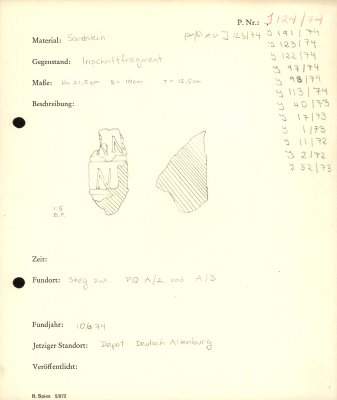 P. Nr.: J 124/74
Material: Sandstein paßt an J 123/74 J 191/74
J 123/74
J 122/74
Gegenstand: Inschriftfragment
J 97/74
J 98/74
Maße: H= 21,5cm B= 10cm T= 12,5cm
J 113/74
Beschreibung: J 40/73
J 17/73
J 1/73
J 11/72
J 2/72
J 52/73
1:5
Zeit:
Fundort: Steg zwi. PQ A/2 und A/3
Fundjahr: 1974
Jetziger Standort: Depot Deutsch Altenburg
Veröffentlicht:
R. Spies 5/872